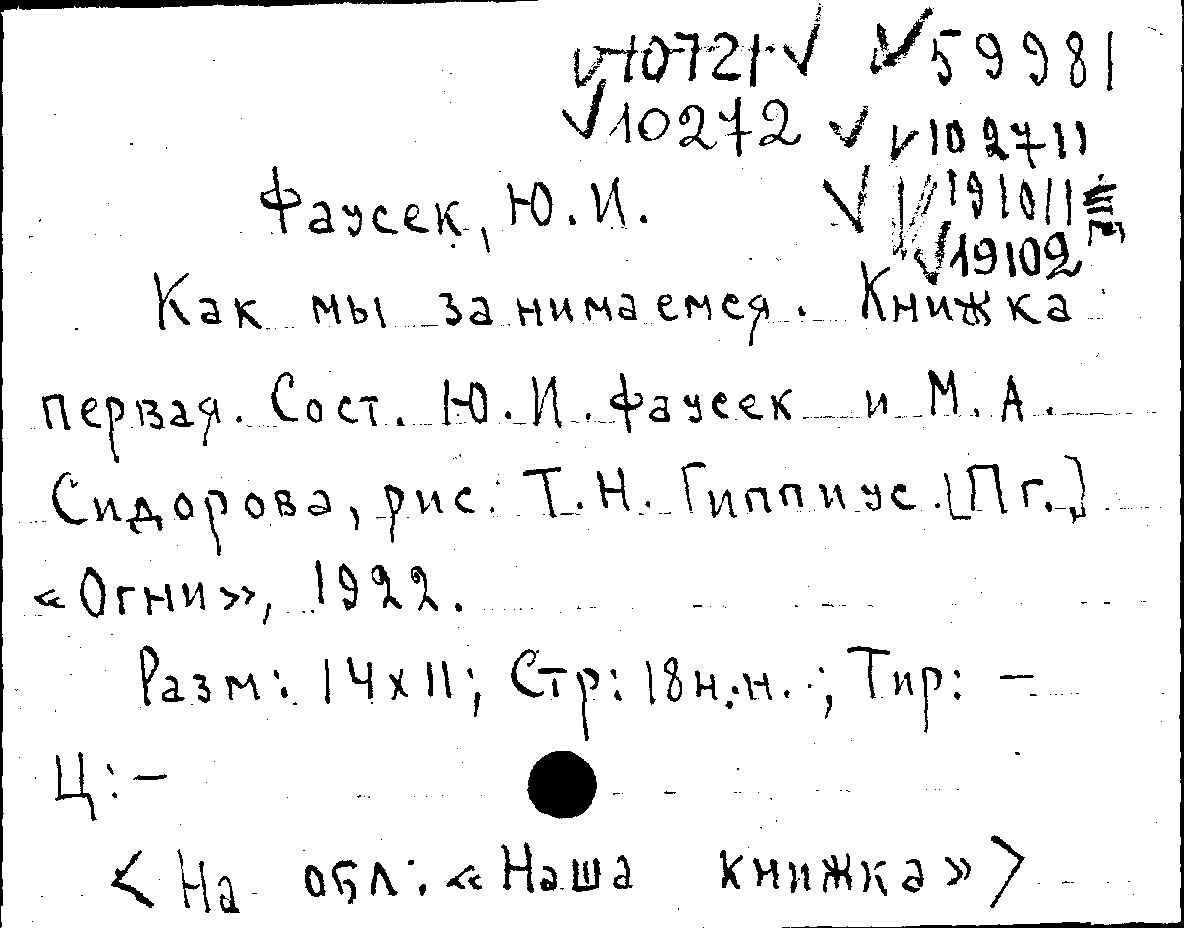 ✓10721✓ ✓59981
✓10272 ✓ ✓102711
Фаусек, Ю.И. ✓
✓19102
Как мы занимаемся. Книжка
первая. Сост. Ю.И. Фаусек и М.А.
Сидорова, рис. Т.Н. Гиппиус. [Пг.]
«Огни», 1922.
Разм: 14х11; Стр: 18н.н.; Тир: –
Ц: –
<На обл: «Наша книжка»>